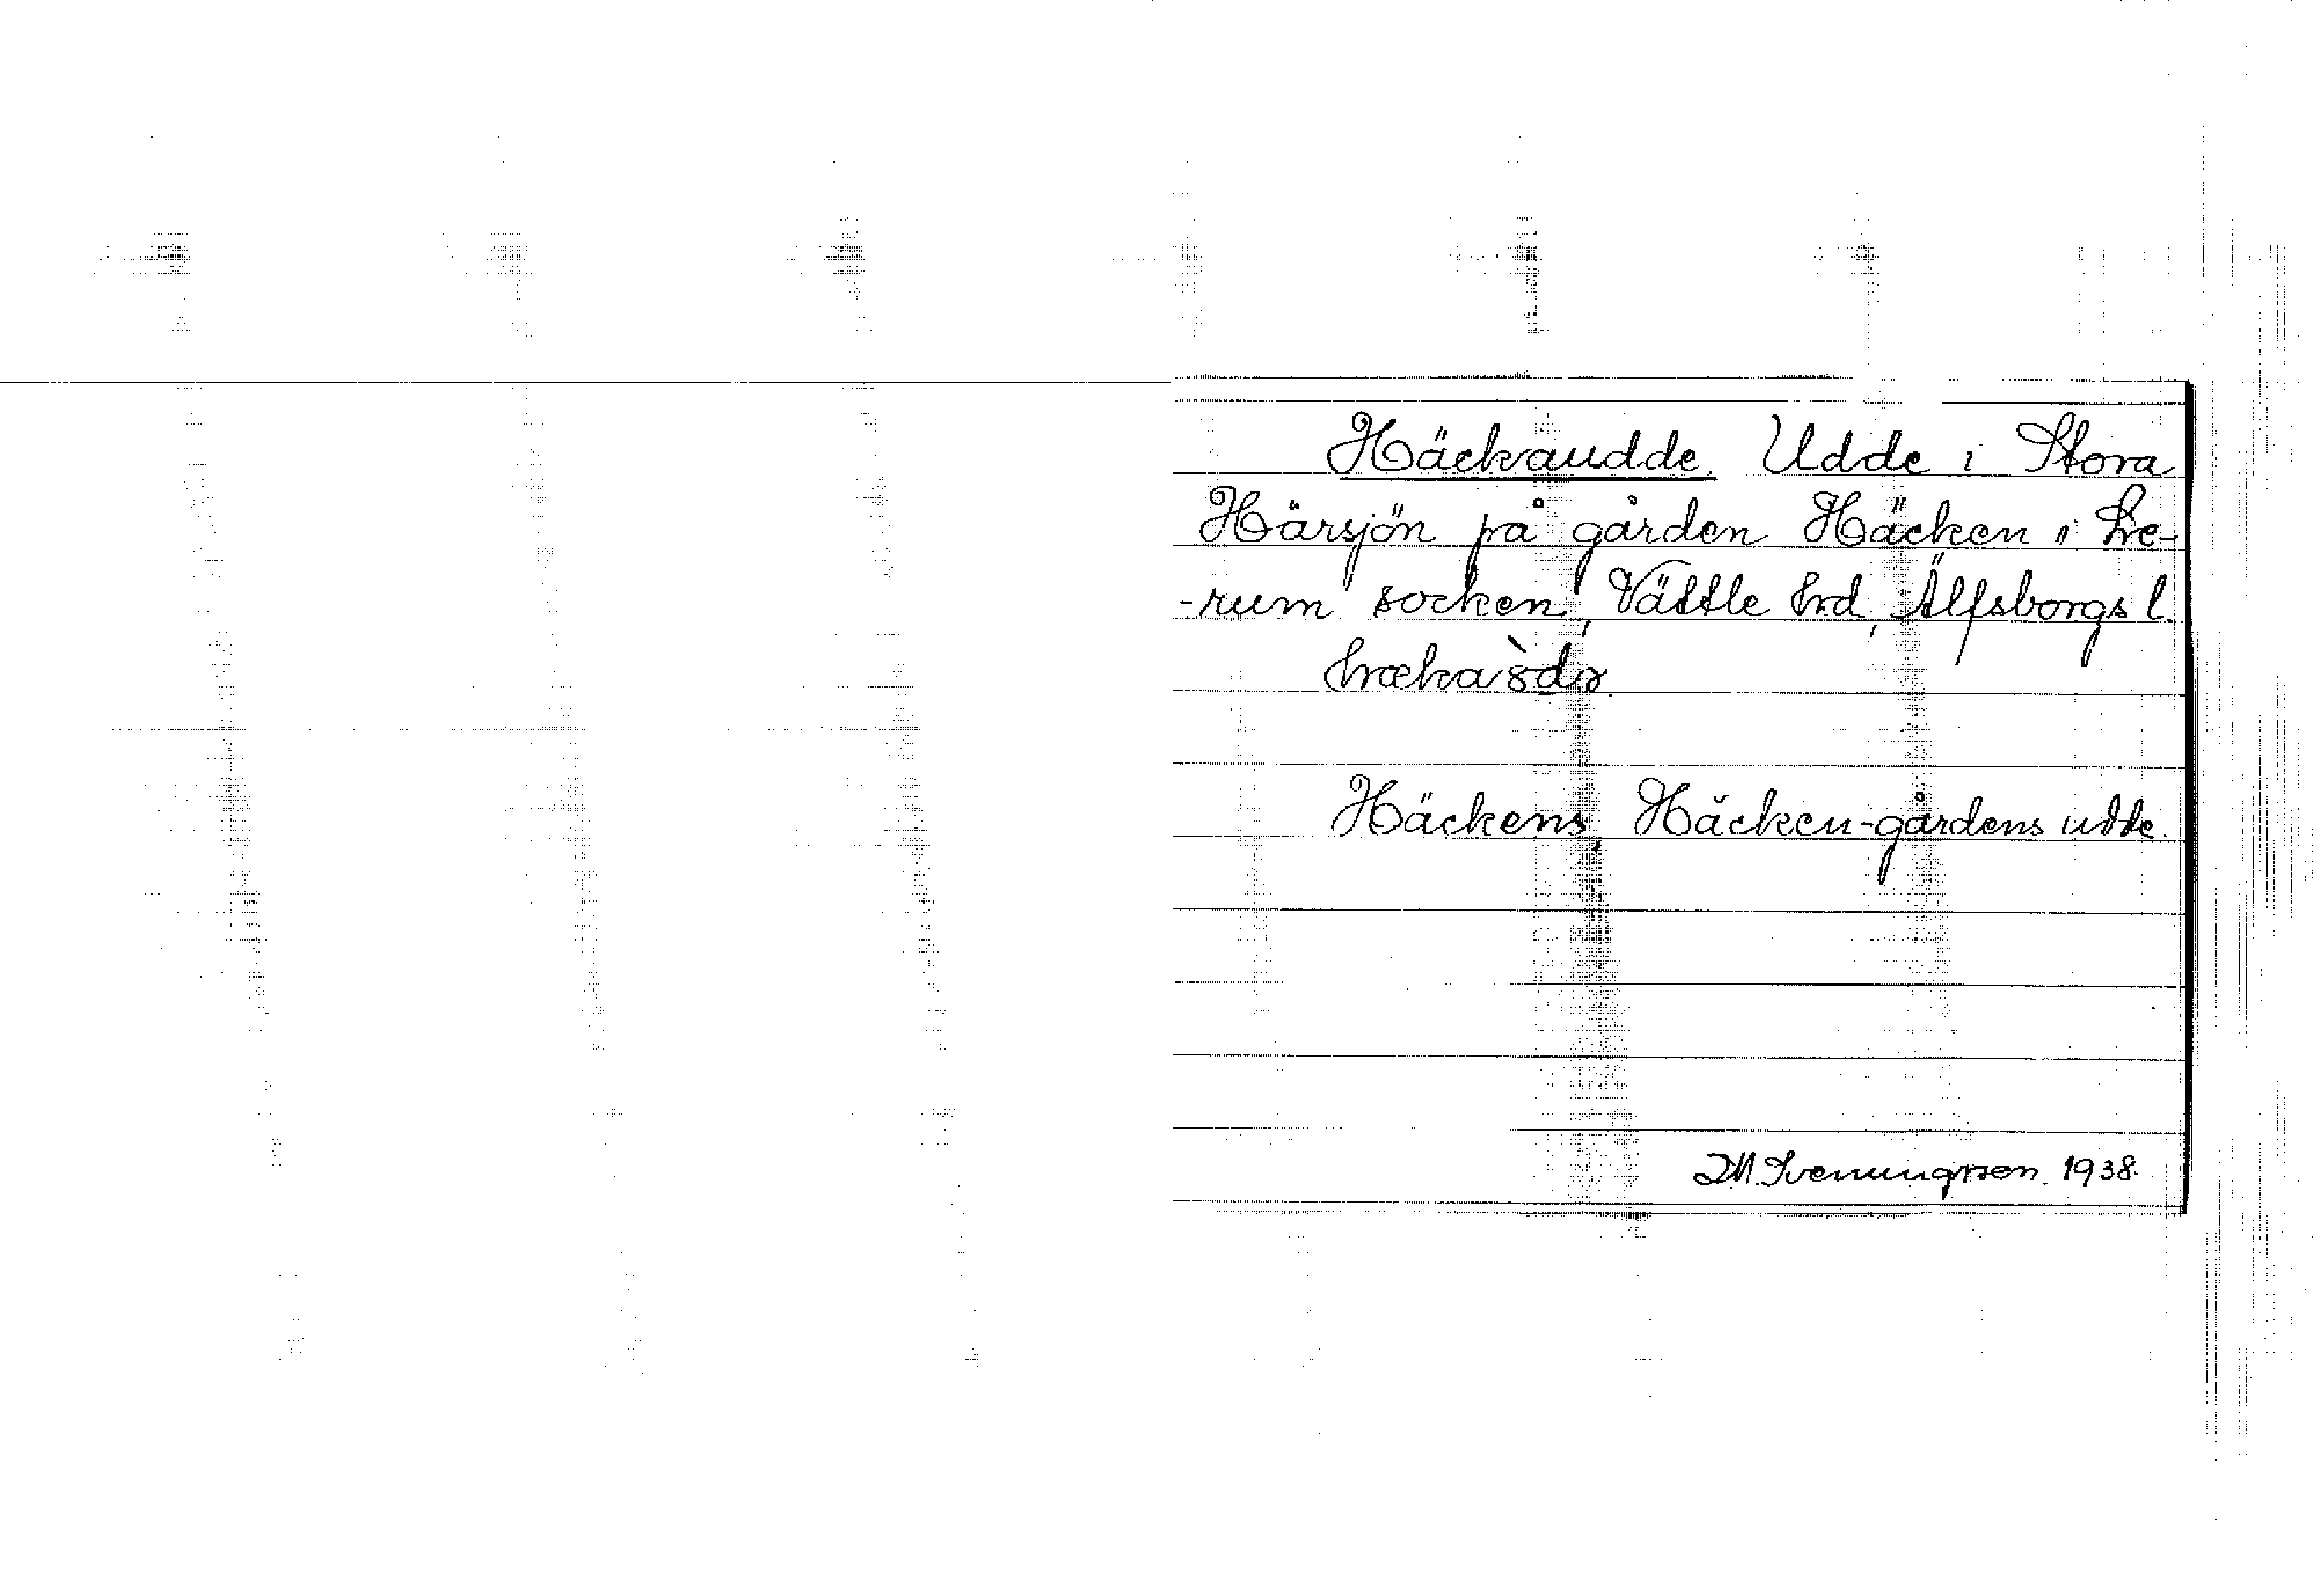 Häckaudde. Udde i Stora
Härsjön på gården Häcken i Le-
-rum socken, Vättle hrd, Älfsborgs l.
Häckens, Häcken-gårdens udde.
D.M. Svenungsson. 1938.